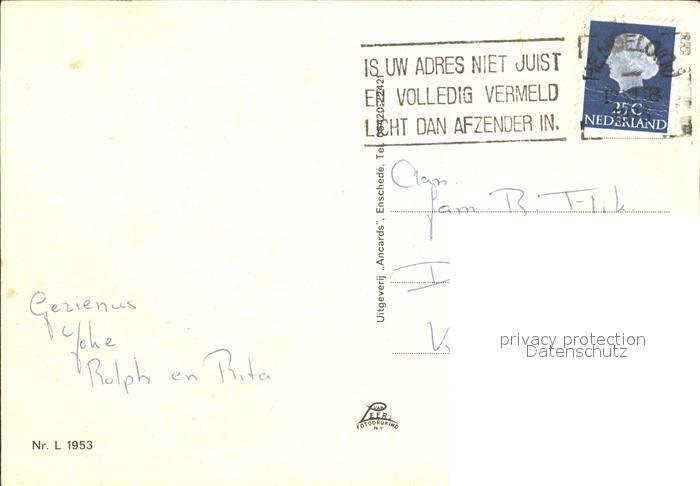 IS UW ADRES NIET JUIST
EN VOLLEDIG VERMELD
LICHT DAN AFZENDER IN.
25C
NEDERLAND
Uitgeverij „Ancards”, Enschede, Tel. 05420-22421
Aan
fam. B. T-lik
Gezienus
Joke
Rolph en Rita
privacy protection
Datenschutz
VAN
LEER's
FOTODRUKIND
N.V.
Nr. L 1953